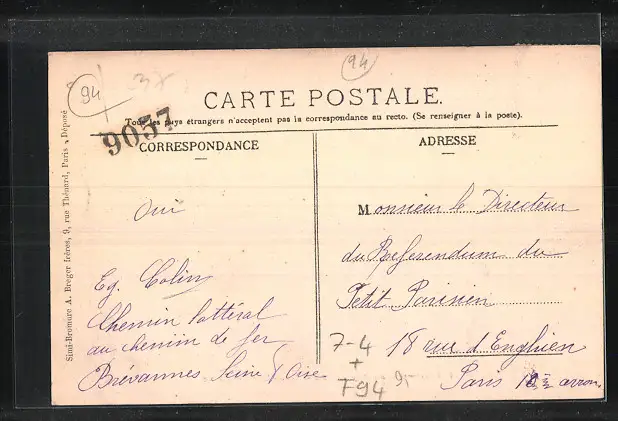 94
94
CARTE POSTALE.
Tous les pays étrangers n'acceptent pas la correspondance au recto. (Se renseigner à la poste).
9057
CORRESPONDANCE
Oui
Eg. Colin
Chemin lattéral
au chemin de fer
Brévannes Seine & Oise
ADRESSE
Monsieur le Directeur
du Referendum du
Petit Parisien
18 rue d'Enghien
Paris 10 arron
7-4
+
F94
Simi-Bromure A. Breger frères, 9, rue Thénard, Paris - Déposé